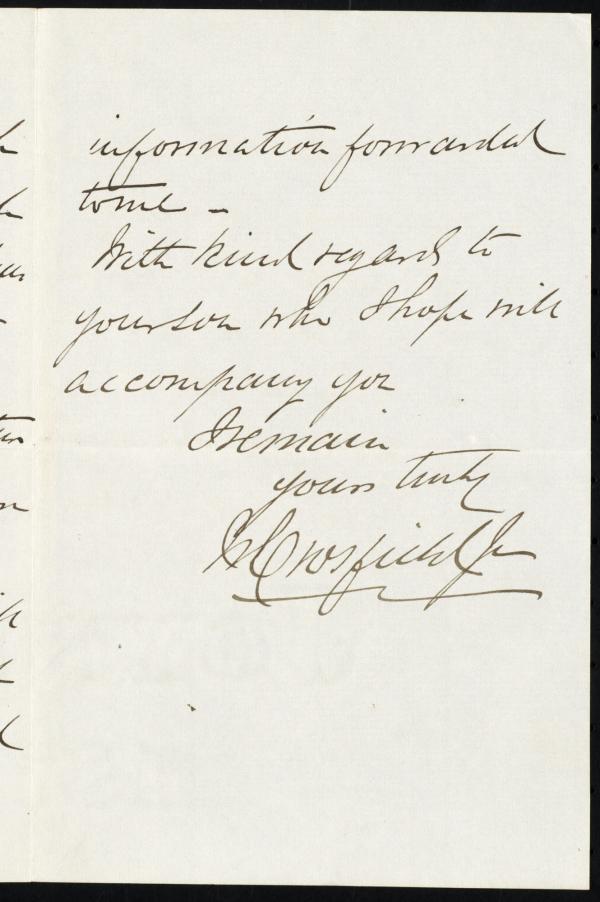 information forwarded
to me -
With kind regards to
your son who I hope will
accompany you
I remain
yours truly
Crosfield Jr